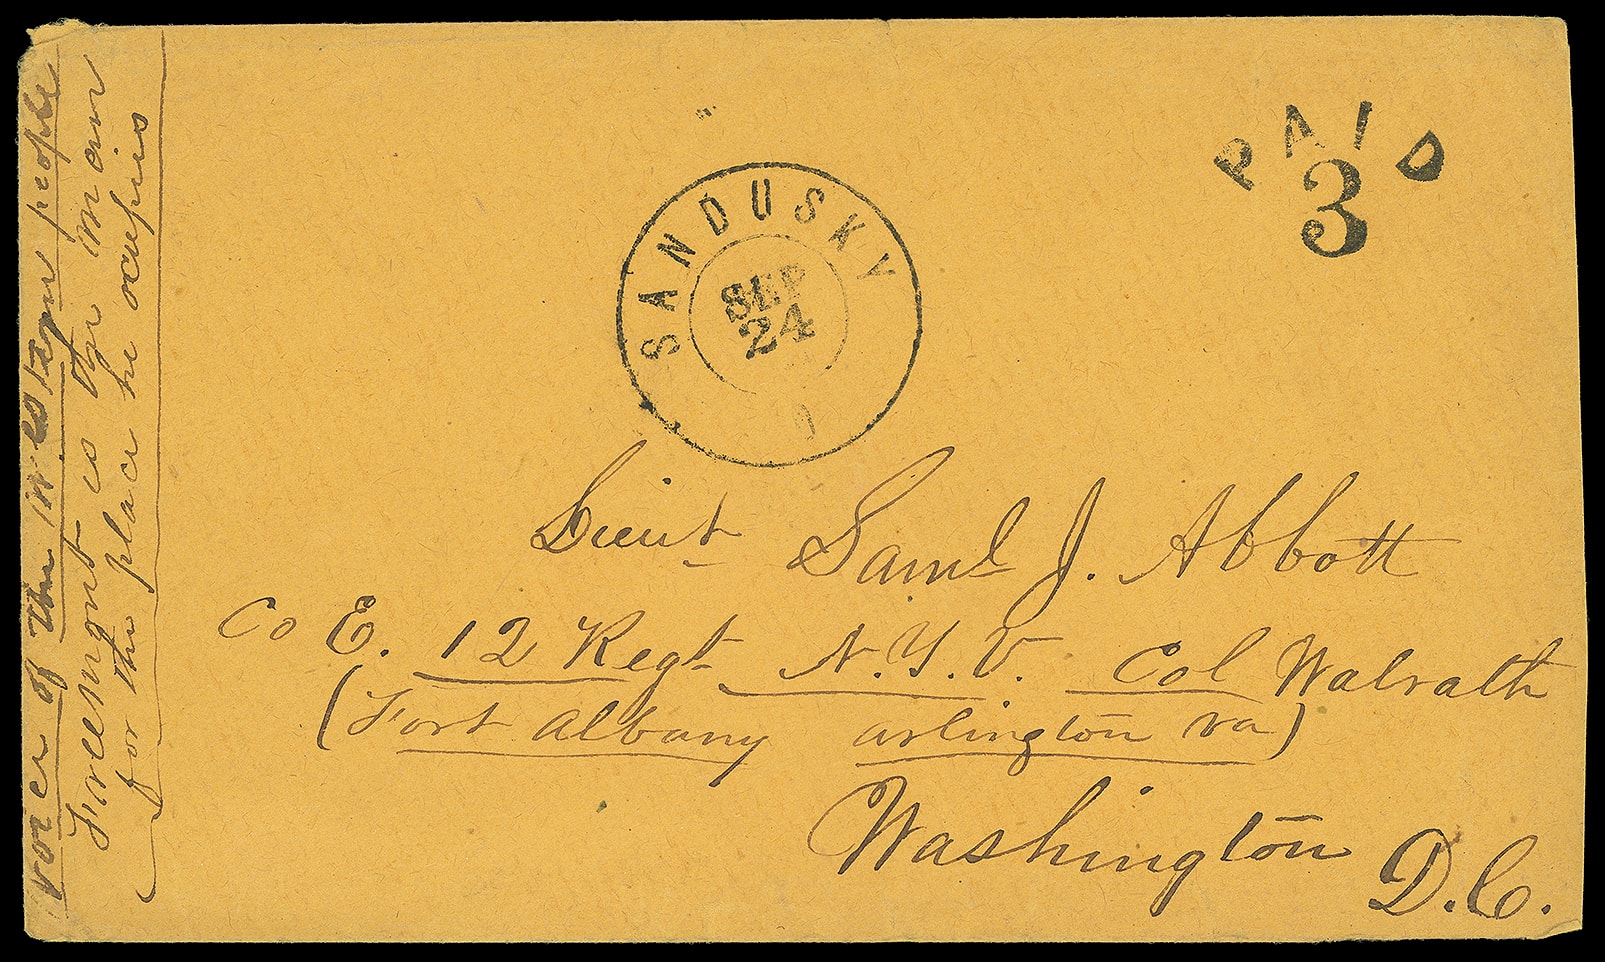 voice of the western people
Freemont is the man
for the place he occupies
PAID
3
SANDUSKY
SEP
24
O
Lieut Saml J. Abbott
Co E. 12 Regt N.Y.V. Col Walrath
(Fort Albany arlington va)
Washington D.C.